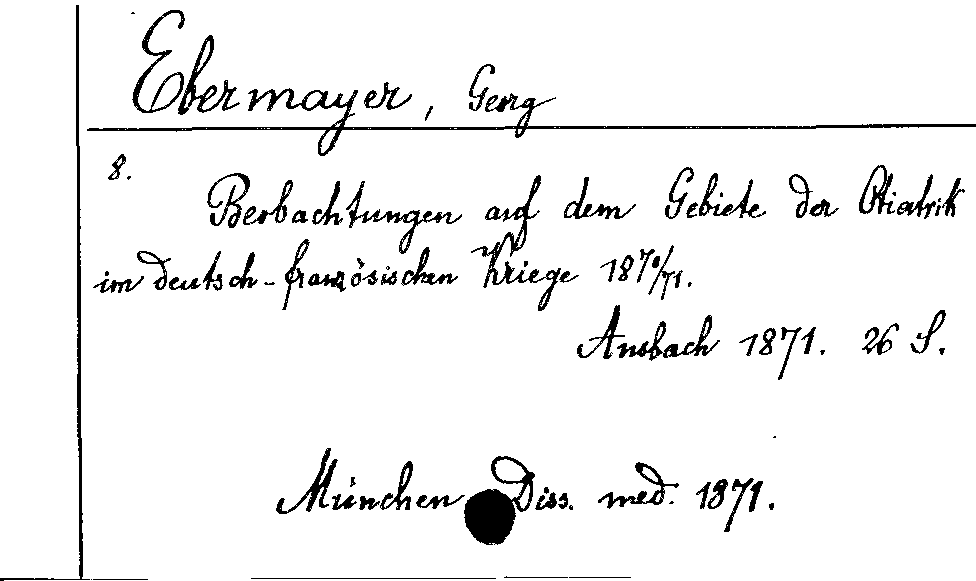 Ebermayer, Georg
8.
Beobachtungen auf dem Gebiete der Otiatrik
im deutsch-französischen Kriege 1870/71.
Ansbach 1871. 26 S.
München Diss. med. 1871.